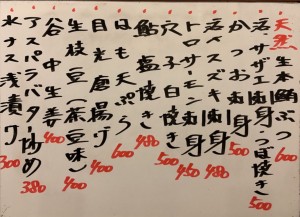 天然 生本鮪ぶつ 600
活サザエ(刺身・つぼ焼き) 500
かつお刺身 500
活スズキ刺身 480
トロサーモン刺身 450
穴子白焼き 500
鮎塩焼き 480
はも天ぷら 600
目光唐揚げ 400
生枝豆(茶豆味) 400
谷中生姜 400
アスパラバター炒め 380
水ナス浅漬け 300